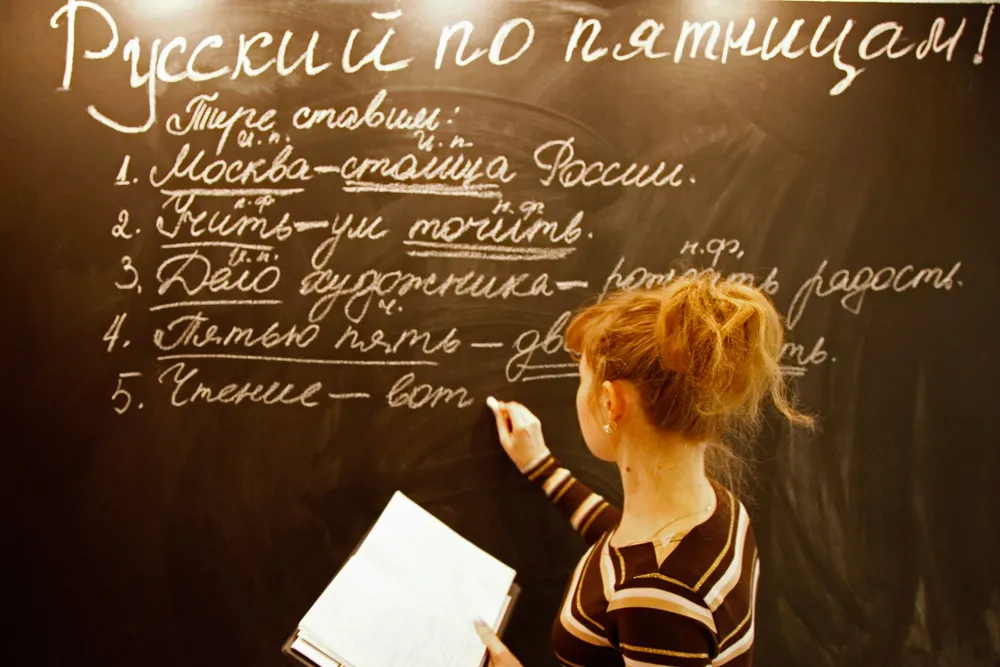 Русский по пятницам!
Тире ставим:
И.п. И.п.
1. Москва – столица России.
н.ф н.ф.
2. Учить – ум точить.
И.п. н.ф.
3. Дело художника – радость.
ч.
4. Пятью пять –
5. Чтение – вот